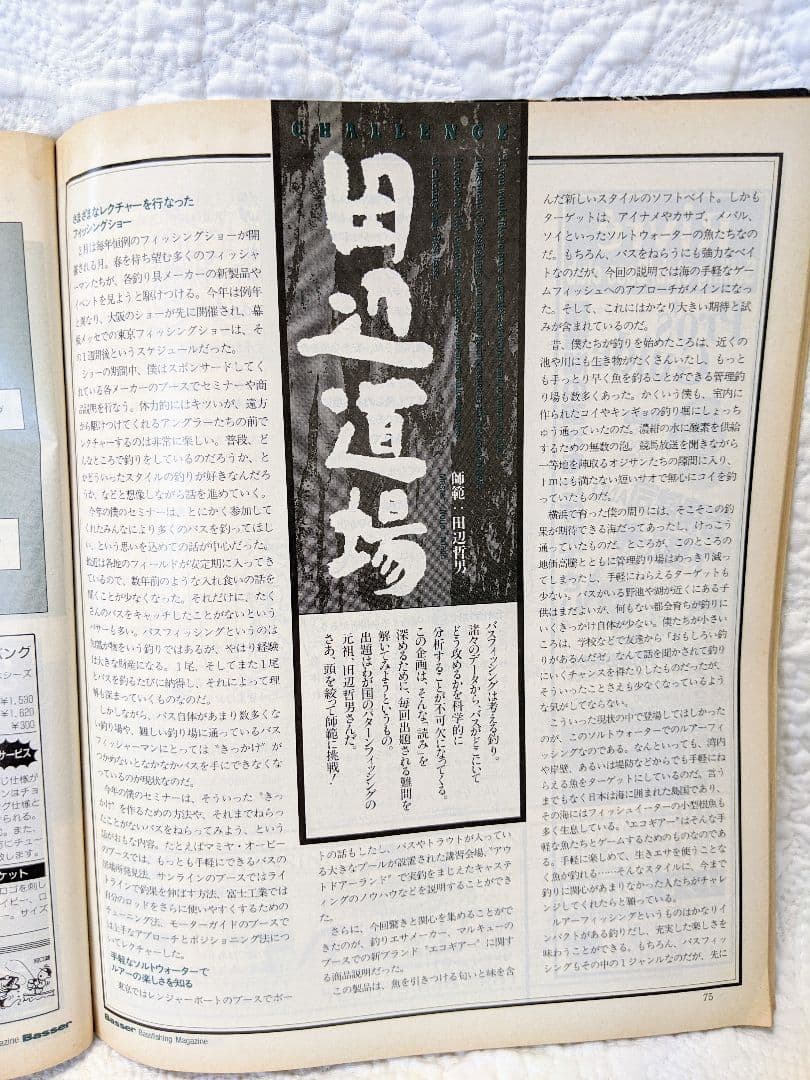 CHALLENGE
田辺道場
師範：田辺哲男
バスフィッシングは考える釣り。
諸々のデータから、バスがどこにいて
どう攻めるかを科学的に
分析することが不可欠になってくる。
この企画は、そんな“読み”を
深めるために、毎回出題される難問を
解いてみようというもの。
出題はわが国のパターンフィッシングの
元祖、田辺哲男さんだ。
さあ、頭を絞って師範に挑戦！
さまざまなレクチャーを行なった
フィッシングショー
2月は毎年恒例のフィッシングショーが開
催される月。春を待ち望む多くのフィッシャ
ーマンたちが、各釣り具メーカーの新製品や
イベントを見ようと駆けつける。今年は例年
と異なり、大阪のショーが先に開催され、幕
張メッセでの東京フィッシングショーは、そ
の1週間後というスケジュールだった。
ショーの期間中、僕はスポンサードしてく
れている各メーカーのブースでセミナーや商
品説明を行なう。体力的にはキツいが、遠方
から駆けつけてくれるアングラーたちの前で
レクチャーするのは非常に楽しい。普段、ど
んなところで釣りをしているのだろうか、と
かどういったスタイルの釣りが好きなんだろ
うか、などと想像しながら話を進めていく。
今年の僕のセミナーは、とにかく参加して
くれたみんなにより多くのバスを釣ってほし
い、という思いを込めての話が中心だった。
最近は各地のフィールドが安定期に入ってき
ているので、数年前のような入れ食いの話を
聞くことが少なくなった。それだけに、たく
さんのバスをキャッチしたことがないという
バサーも多い。バスフィッシングというのは
知識が物をいう釣りではあるが、やはり経験
は大きな財産になる。1尾、そしてまた1尾
とバスを釣るたびに納得し、それによって理
解も深まっていくものなのだ。
しかしながら、バス自体があまり数多くな
い釣り場や、難しい釣り場に通っているバス
フィッシャーマンにとっては“きっかけ”が
つかめないとなかなかバスを手にできなくな
っているのが現状なのだ。
今年の僕のセミナーは、そういった“きっ
かけ”を作るための方法や、それまでねらっ
たことがないバスをねらってみよう、という
話がおもな内容。たとえばマミヤ・オーピー
のブースでは、もっとも手軽にできるバスの
居場所発見法、サンラインのブースではライ
トラインで釣果を伸ばす方法、富士工業では
自分のロッドをさらに使いやすくするための
チューニング法、モーターガイドのブースで
は上手なアプローチとポジショニング法につ
いてレクチャーした。
手軽なソルトウォーターで
ルアーの楽しさを知る
東京ではレンジャーボートのブースでボー
トの話もしたし、バスやトラウトが入ってい
る大きなプールが設置された講習会場、“アウ
トドアーランド”で実釣をまじえたキャステ
ィングのノウハウなどを説明することができ
た。
さらに、今回驚きと関心を集めることがで
きたのが、釣りエサメーカー、マルキューの
ブースでの新ブランド“エコギアー”に関す
る商品説明だった。
この製品は、魚を引きつける匂いと味を含
んだ新しいスタイルのソフトベイト。しかも
ターゲットは、アイナメやカサゴ、メバル、
ソイといったソルトウォーターの魚たちなの
だ。もちろん、バスをねらうにも強力なベイ
トなのだが、今回の説明では海の手軽なゲー
ムフィッシュへのアプローチがメインになっ
た。そして、これにはかなり大きい期待と試
みが含まれているのだ。
昔、僕たちが釣りを始めたころは、近くの
池や川にも生き物がたくさんいたし、もっと
も手っとり早く魚を釣ることができる管理釣
り場も数多くあった。かくいう僕も、室内に
作られたコイやキンギョの釣り堀にしょっち
ゅう通っていたのだ。濃紺の水に酸素を供給
するための無数の泡。競馬放送を聞きながら
一等地を陣取るオジサンたちの隙間に入り、
1mにも満たない短いサオで無心にコイを釣
っていたものだ。
横浜で育った僕の周りには、そこそこの釣
果が期待できる海だってあったし、けっこう
通っていたものだ。ところが、このところの
地価高騰とともに管理釣り場はめっきり減っ
てしまったし、手軽にねらえるターゲットも
少ない。バスがいる野池や湖が近くにある子
供はまだよいが、何もない都会育ちが釣りに
いくきっかけ自体が少ない。僕たちが小さい
ころは、学校などで友達から「おもしろい釣
りがあるんだぜ」なんて話を聞かされて釣り
にいくチャンスを得たりしたものだったが、
そういったことさえも少なくなっているよう
な気がしてならない。
こういった現状の中で登場してほしかった
のが、このソルトウォーターでのルアーフィ
ッシングなのである。なんといっても、湾内
や岸壁、あるいは堤防などからでも手軽にね
らえる魚をターゲットにしているのだ。言う
までもなく日本は海に囲まれた島国であり、
その海にはフィッシュイーターの小型根魚も
多く生息している。“エコギアー”はそんな手
軽な魚たちとゲームするためのものなのであ
る。手軽に楽しめて、生きエサを使うことな
く魚が釣れる……そんなスタイルに、今まで
釣りに関心があまりなかった人たちがチャレ
ンジしてくれたらと願っている。
ルアーフィッシングというものはかなりイ
ンパクトがある釣りだし、充実した楽しさを
味わうことができる。もちろん、バスフィッ
シングもその中の1ジャンルなのだが、先に
75
Basser Bassfishing Magazine
バング
¥1,530
¥1,620
¥300
サービス
azine Basser